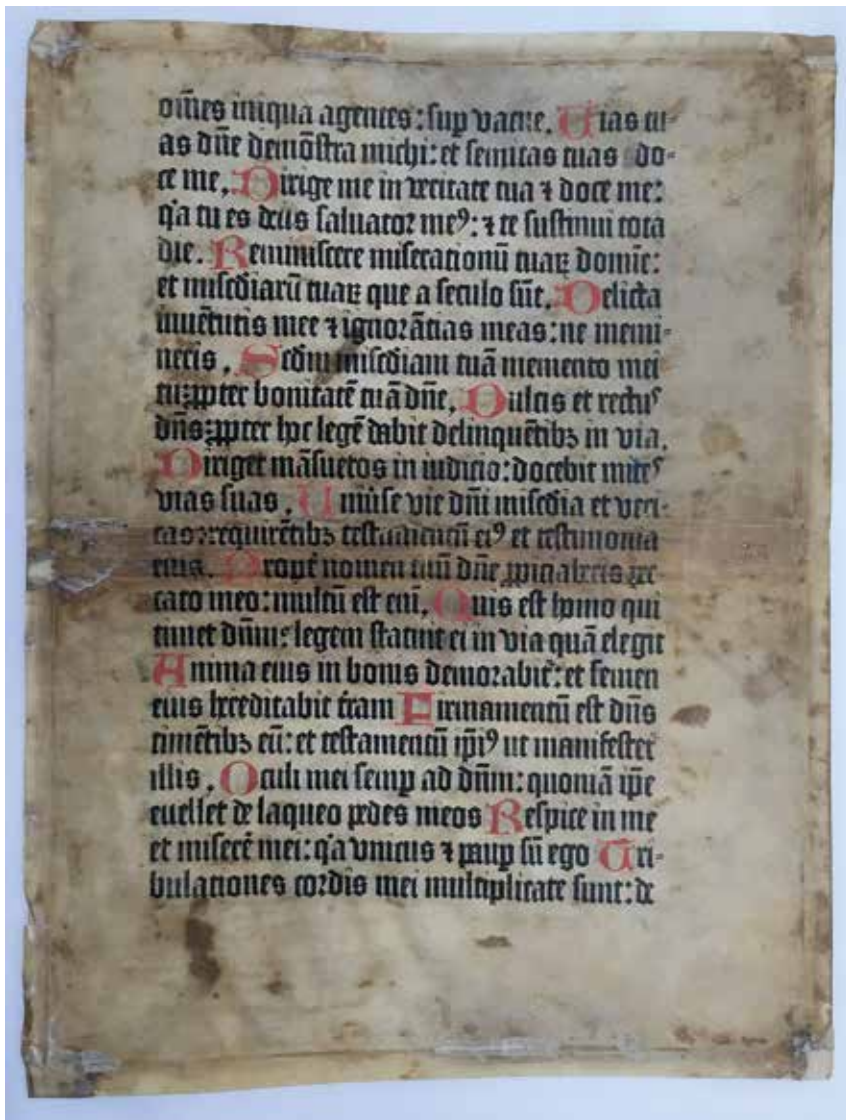 om̄es iniqua agentes: sup̱ vacue. Vias tu-
as dn̄e demōstra michi: et semitas tuas do-
ce me. Dirige me in veritate tua ⁊ doce me:
q̄a tu es deus saluator meꝰ: ⁊ te sustinui tota
die. Reminiscere miserationū tuaꝝ domīe:
et mīscd̄iarū tuaꝝ que a seculo sūt. Delicta
iuuētutis mee ⁊ ignorātias meas: ne memi-
neris. Sed̄m mīscd̄iam tuā memento mei
tu: ꝓpter bonitatē tuā dn̄e. Dulcis et rectuꝰ
dn̄s: ꝓpter hoc legē dabit delinquētibꝫ in via.
Diriget māsuetos in iudicio: docebit miteꝰ
vias suas. Uniūse vie dn̄i mīscd̄ia et veri-
tas: requirētibꝫ testamentū eiꝰ et testimonia
eius. Propt̄ nomen tuū dn̄e ꝓpiciaberis pec-
cato meo: multū est eni̅. Quis est homo qui
timet dn̄m: legem statuit ei in via quā elegit
Anima eius in bonis demorabit̄: et semen
eius hereditabit t̄ram Firmamentū est dn̄s
timētibꝫ eū: et testamentū ip̄iꝰ ut manifestet̄
illis. Oculi mei semp̱ ad dn̄m: quoniā ip̄e
euellet de laqueo pedes meos Respice in me
et miserē mei: q̄a vnicus ⁊ paup̱ sū ego Tri-
bulationes cordis mei multiplicate sunt: de